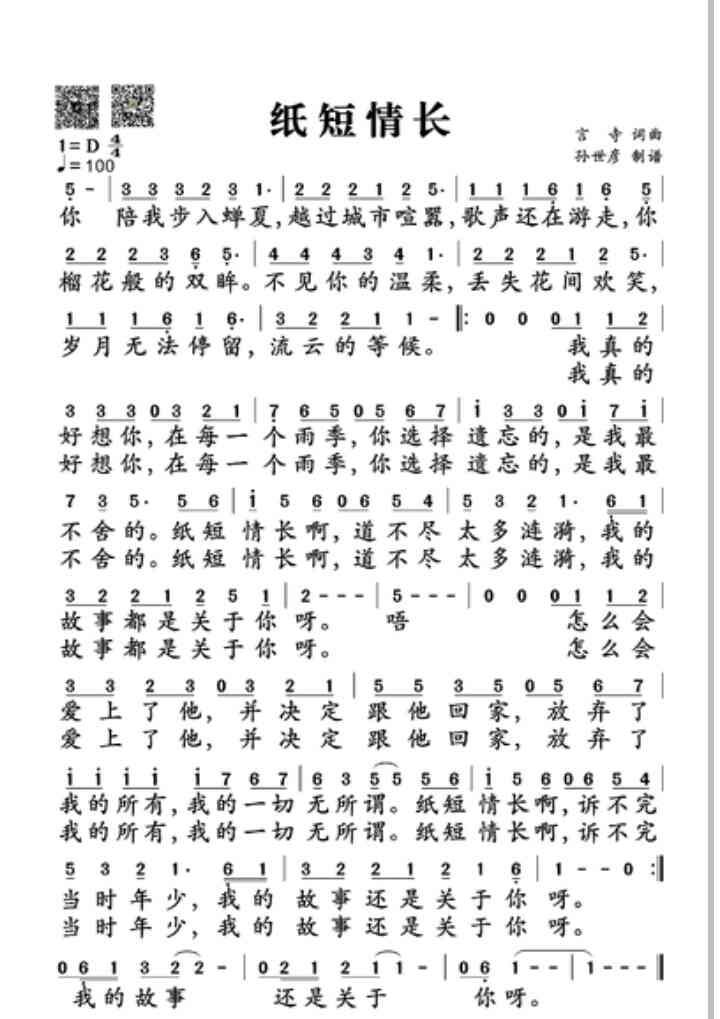 纸短情长
言 寺 词曲
孙世彦 制谱
1=D 4/4
♩=100
5 - | 3 3 3 2 3 1· | 2 2 2 1 2 5· | 1 1 1 6 1 6 5 |
你 陪我步入蝉夏,越过城市喧嚣,歌声还在游走,你
2 2 2 3 6 5· | 4 4 4 3 4 1· | 2 2 2 1 2 5· |
榴花般的双眸。不见你的温柔,丢失花间欢笑,
1 1 1 6 1 6· | 3 2 2 1 1 - ‖: 0 0 0 1 1 2 |
岁月无法停留,流云的等候。 我真的
我真的
3 3 3 0 3 2 1 | 7 6 5 0 5 6 7 | i 3 3 0 i 7 i |
好想你,在每一 个雨季,你选择 遗忘的,是我最
好想你,在每一 个雨季,你选择 遗忘的,是我最
7 3 5· 5 6 | i 5 6 0 6 5 4 | 5 3 2 1· 6 1 |
不舍的。纸短 情长啊,道不尽 太多涟漪,我的
不舍的。纸短 情长啊,道不尽 太多涟漪,我的
3 2 2 1 2 5 1 | 2 - - - | 5 - - - | 0 0 0 1 1 2 |
故事都是关于你 呀。 唔 怎么会
故事都是关于你 呀。 怎么会
3 3 2 3 0 3 2 1 | 5 5 3 5 0 5 6 7 |
爱上了他,并决定 跟他回家,放弃了
爱上了他,并决定 跟他回家,放弃了
i i i i i 7 6 7 | 6 3 5 5 5 6 | i 5 6 0 6 5 4 |
我的所有,我的一切 无所谓。纸短 情长啊,诉不完
我的所有,我的一切 无所谓。纸短 情长啊,诉不完
5 3 2 1· 6 1 | 3 2 2 1 2 1 6 | 1 - - 0 :‖
当时年少,我的 故事还是关于你 呀。
当时年少,我的 故事还是关于你 呀。
0 6 1 3 2 2 - | 0 2 1 2 1 1 - | 0 6 1 - - | 1 - - - ‖
我的故事 还是关于 你呀。